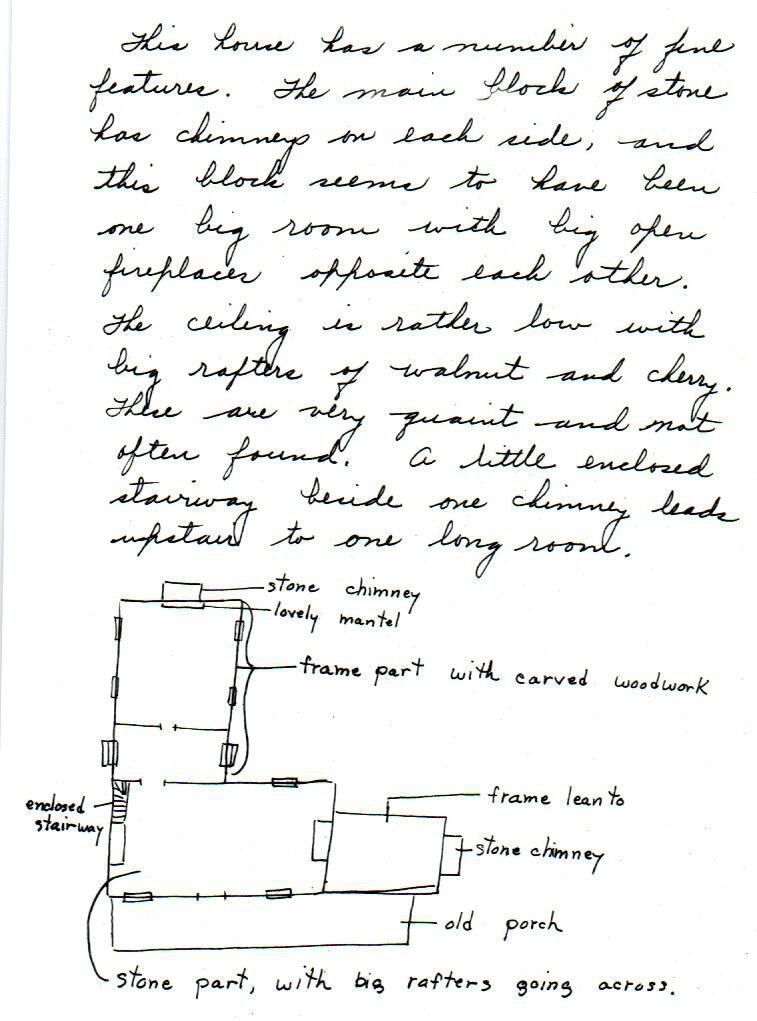 This house has a number of fine
features. The main block of stone
has chimneys on each side, and
this block seems to have been
one big room with big open
fireplaces opposite each other.
The ceiling is rather low with
big rafters of walnut and cherry.
These are very quaint and not
often found. A little enclosed
stairway beside one chimney leads
upstair to one long room.
stone chimney
lovely mantel
frame part with carved woodwork
enclosed
stairway
frame lean to
stone chimney
old porch
stone part, with big rafters going across.